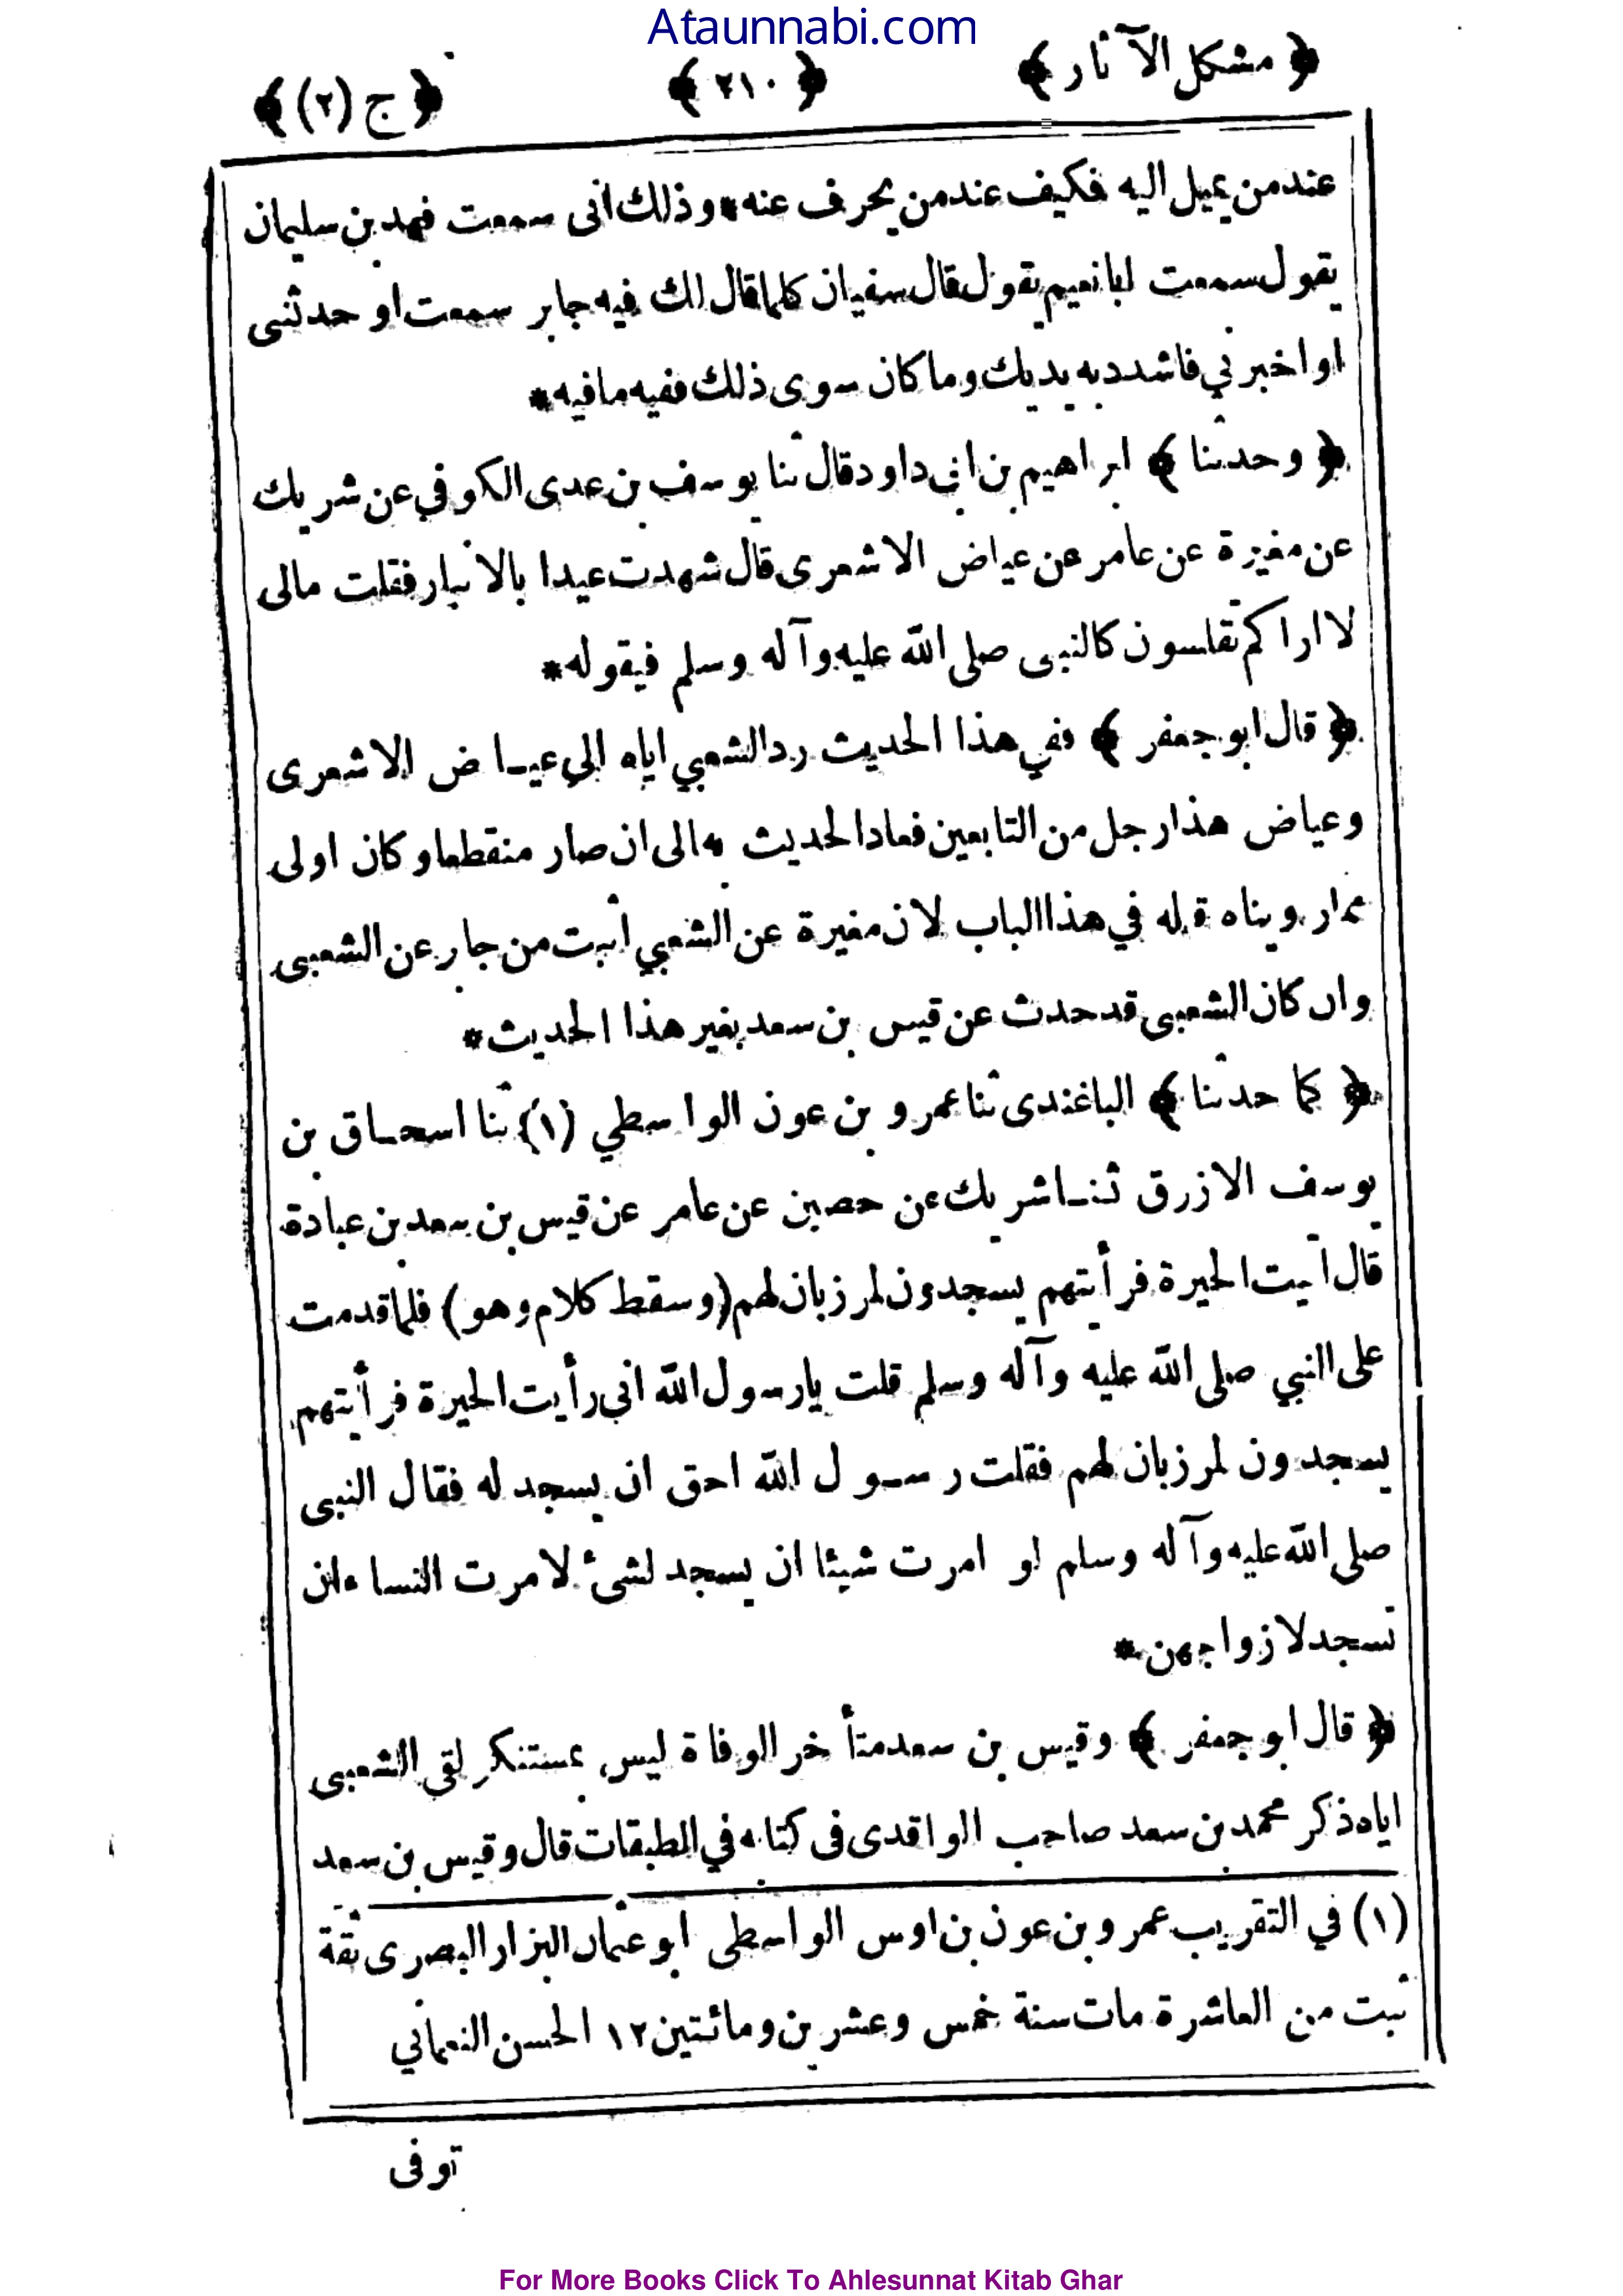 Ataunnabi.com
﴿ مشكل الآثار ﴾ ﴿ ٢١٠ ﴾ ﴿ ج (٢) ﴾
عند من يميل اليه فكيف عند من يحرف عنه * وذلك انى سمعت فهد بن سليمان
يقول سمعت ابا نعيم يقول قال سفيان كلما قال لك فيه جابر سمعت او حدثنى
او اخبرني فاشدد به يديك وما كان سوى ذلك ففيه ما فيه *
﴿ وحدثنا ﴾ ابراهيم بن ابى داود قال ثنا يوسف بن عدى الكوفي عن شريك
عن مغيرة عن عامر عن عياض الاشعرى قال شهدت عيدا بالانبار فقلت مالى
لا اراكم تقلسون كالنبى صلى الله عليه وآله وسلم فيقوله *
﴿ قال ابو جعفر ﴾ ففي هذا الحديث رد الشعبي اياه الى عياض الاشعرى
وعياض هذا رجل من التابعين فعاد الحديث به الى ان صار منقطعا وكان اولى
مما رويناه قبله في هذا الباب لان مغيرة عن الشعبي أثبت من جابر عن الشعبى
وان كان الشعبى قد حدث عن قيس بن سعد بغير هذا الحديث *
﴿ كما حدثنا ﴾ الباغندى ثنا عمرو بن عون الواسطي (١) ثنا اسحاق بن
يوسف الازرق ثنا شريك عن حصين عن عامر عن قيس بن سعد بن عبادة
قال أتيت الحيرة فرأيتهم يسجدون لمرزبان لهم (وسقط كلام وهو) فلما قدمت
على النبي صلى الله عليه وآله وسلم قلت يا رسول الله انى رأيت الحيرة فرأيتهم
يسجدون لمرزبان لهم فقلت رسول الله احق ان يسجد له فقال النبى
صلى الله عليه وآله وسلم لو امرت شيئا ان يسجد لشئ لامرت النساء ان
تسجد لازواجهن *
﴿ قال ابو جعفر ﴾ وقيس بن سعد متأخر الوفاة ليس بمستنكر لقى الشعبى
اياه ذكر محمد بن سعد صاحب الواقدى فى كتابه في الطبقات قال وقيس بن سعد
(١) في التقريب عمرو بن عون بن اوس الواسطى ابو عثمان البزار البصرى ثقة
ثبت من العاشرة مات سنة خمس وعشرين ومائتين ١٢ الحسن النعماني
توفى
For More Books Click To Ahlesunnat Kitab Ghar